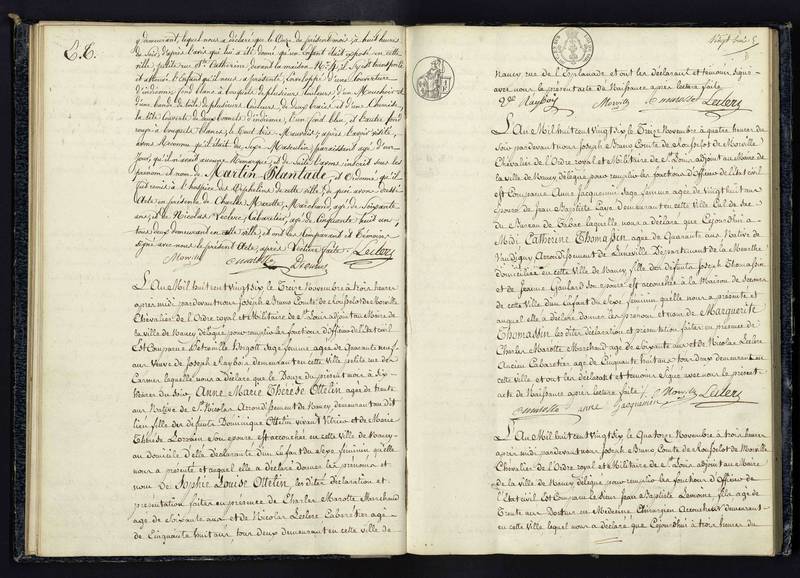 y demeurant, lequel nous a déclaré que le Onze du présent mois, à huit heures
du Soir, d'après l'avis qui lui a été donné qu'un Enfant était exposé en cette
ville, petite rue Ste Catherine, devant la maison N° 4, il s'y est transporté
et a trouvé l'Enfant qu'il nous a présenté, Enveloppé d'une Couverture
d'indienne, fond blanc à bouquets de plusieurs Couleurs, d'un Mouchoir et
d'une bande de toile de plusieurs Couleurs, de deux braies et d'une Chemise,
la tête Couverte de deux bonnets d'indienne, l'un fond bleu, et l'autre fond
rouge à bouquets blancs, le tout très Mauvais; après l'avoir visité,
avons Reconnu qu'il était du Sexe Masculin, paraissant agé d'un
Jour, qu'il n'avait aucune Remarque; et de suite l'avons inscrit sous les
prénom et nom de Martin Plantade, et Ordonné qu'il
fut remis à l'hospice des Orphelins de cette ville; de quoi avons dressé
Acte en présence de Charles Marotte, Marchand, agé de Soixante
ans; et de Nicolas Leclerc, Cabaretier, agé de Cinquante huit ans,
tous deux demeurant en cette ville; et ont les Comparant et Témoins
signé avec nous le présent Acte, après Lecture faite.
Morville Marotte Leclerc
L'An Mil huit cent Vingt six, le Treize Novembre à trois heures
après midi, pardevant nous Joseph Bruno Comte de Morville
Chevalier de l'Ordre royal et Militaire de St Louis, adjoint au Maire de
la ville de Nancy, délégué pour remplir les fonctions d'Officier de l'Etat civil
Est Comparue Petronille Bogott Sage femme, agée de Quarante neuf
ans Veuve de Joseph Rayboir demeurant en cette Ville petite rue des
Carmes laquelle nous a déclaré que le Douze du présent mois à Six
heures du Soir, Anne Marie Thérèse Ottelin agée de trente
ans Native de St Nicolas Arrondissement de Nancy, demeurant au dit
lieu fille des défunts Dominique Ottelin vivant Vitrier et de Marie
Thérèse Lorrain son épouse est accouchée en cette Ville de Nancy
au domicile d'elle déclarante d'un Enfant du Sexe féminin, qu'elle
nous a présenté et auquel elle a déclaré donner les prénoms et
nom de Sophie Louise Ottelin, les dites déclaration et
présentation faites en présence de Charles Marotte Marchand
agé de Soixante ans et de Nicolas Leclerc Cabaretier agé
de Cinquante huit ans tous deux demeurant en cette ville de
Nancy rue de l'Esplanade et ont les déclarant et témoins signé
avec nous le présent acte de Naissance après lecture faite
Morville Marotte Leclerc
L'An Mil huit cent Vingt six le Treize Novembre à quatre heures du
Soir pardevant nous Joseph Bruno Comte de Morville
Chevalier de l'Ordre royal et Militaire de St Louis, adjoint au Maire de
la ville de Nancy délégué pour remplir les fonctions d'Officier de l'Etat civil
Est Comparue Anne Jacquemin Sage femme agée de Vingt huit ans
épouse de Jean Baptiste demeurant en cette Ville Cul de Sac
du laquelle nous a déclaré que Cejourd'hui à
Midi Catherine Thomassin agée de Quarante ans Native de
Vaudigny Arrondissement de Lunéville Département de la Meurthe
domiciliée en cette Ville de Nancy fille des défunts Joseph Thomassin
et de Jeanne son épouse est accouchée à la Maison de Secours
de cette Ville d'un Enfant du Sexe féminin qu'elle nous a présenté et
auquel elle a déclaré donner les prénom et nom de Marguerite
Thomassin, les dites déclaration et présentation faites en présence de
Charles Marotte Marchand agé de Soixante ans et de Nicolas Leclerc
Ancien Cabaretier agé de Cinquante huit ans tous deux demeurant en
cette Ville et ont les déclarant et témoins Signé avec nous le présent
acte de Naissance après lecture faite.
Marotte anne Jacquemin Morville Leclerc
L'An Mil huit cent Vingt six, le Quatorze Novembre à trois heures
après midi, pardevant nous Joseph Bruno Comte de Morville
Chevalier de l'Ordre royal et Militaire de St Louis, adjoint au Maire
de la ville de Nancy, délégué pour remplir les fonctions d'Officier de
l'Etat civil Est Comparu le Sieur Jean Baptiste Lemoine fils agé de
Trente ans Docteur en Médecine Chirurgien Accoucheur demeurant
en cette Ville lequel nous a déclaré que Cejourd'hui à trois heures du